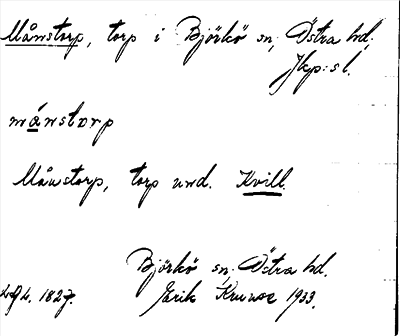 Månstorp, torp i Björkö sn, Östra hd,
Jkp:s l.
månstorp
Månstorp, torp und. Kvill.
Björkö sn, Östra hd.
1827. Erik Kruuse 1933.